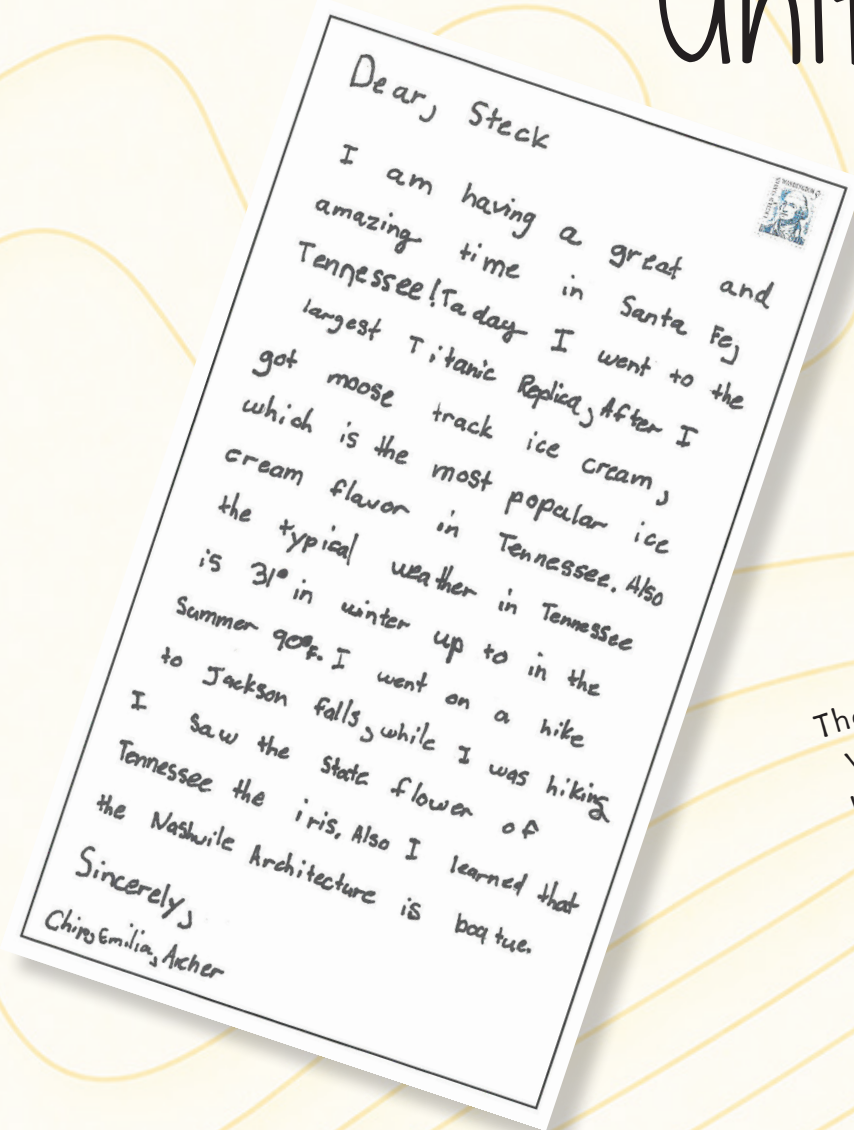 Unit
Dear, Steck
I am having a great and
amazing time in Santa Fe,
Tennessee! Taday I went to the
largest Titanic Replica, After I
got moose track ice cream,
which is the most popular ice
cream flavor in Tennessee. Also
the typical weather in Tennessee
is 31° in winter up to in the
Summer 90°F. I went on a hike
to Jackson falls, while I was hiking
I saw the State flower of
Tennessee the iris. Also I learned that
the Nashvile Architecture is boq tue.
Sincerely,
Emilia, Archer
The